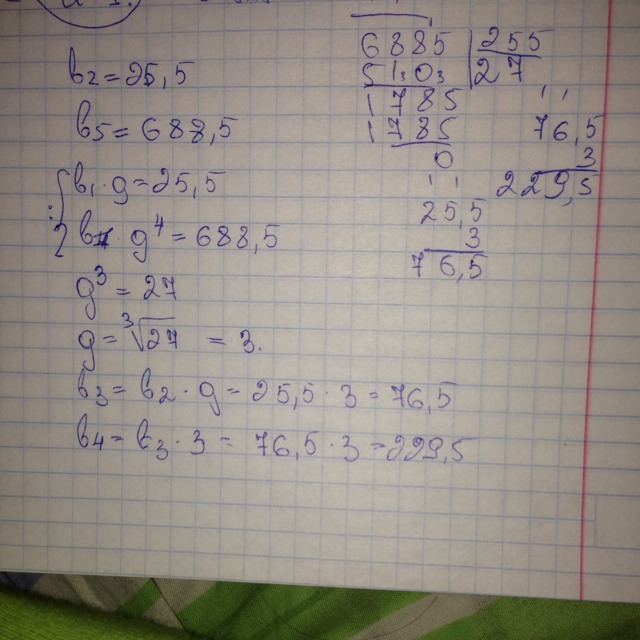 b₂ = 25,5
b₅ = 688,5
: { b₁ · g = 25,5
b₁ · g⁴ = 688,5
g³ = 27
g = ³√27 = 3.
b₃ = b₂ · g = 25,5 · 3 = 76,5
b₄ = b₃ · 3 = 76,5 · 3 = 229,5
6885 | 255
510 | 27
1785
1785
0
25,5
3
76,5
76,5
3
229,5